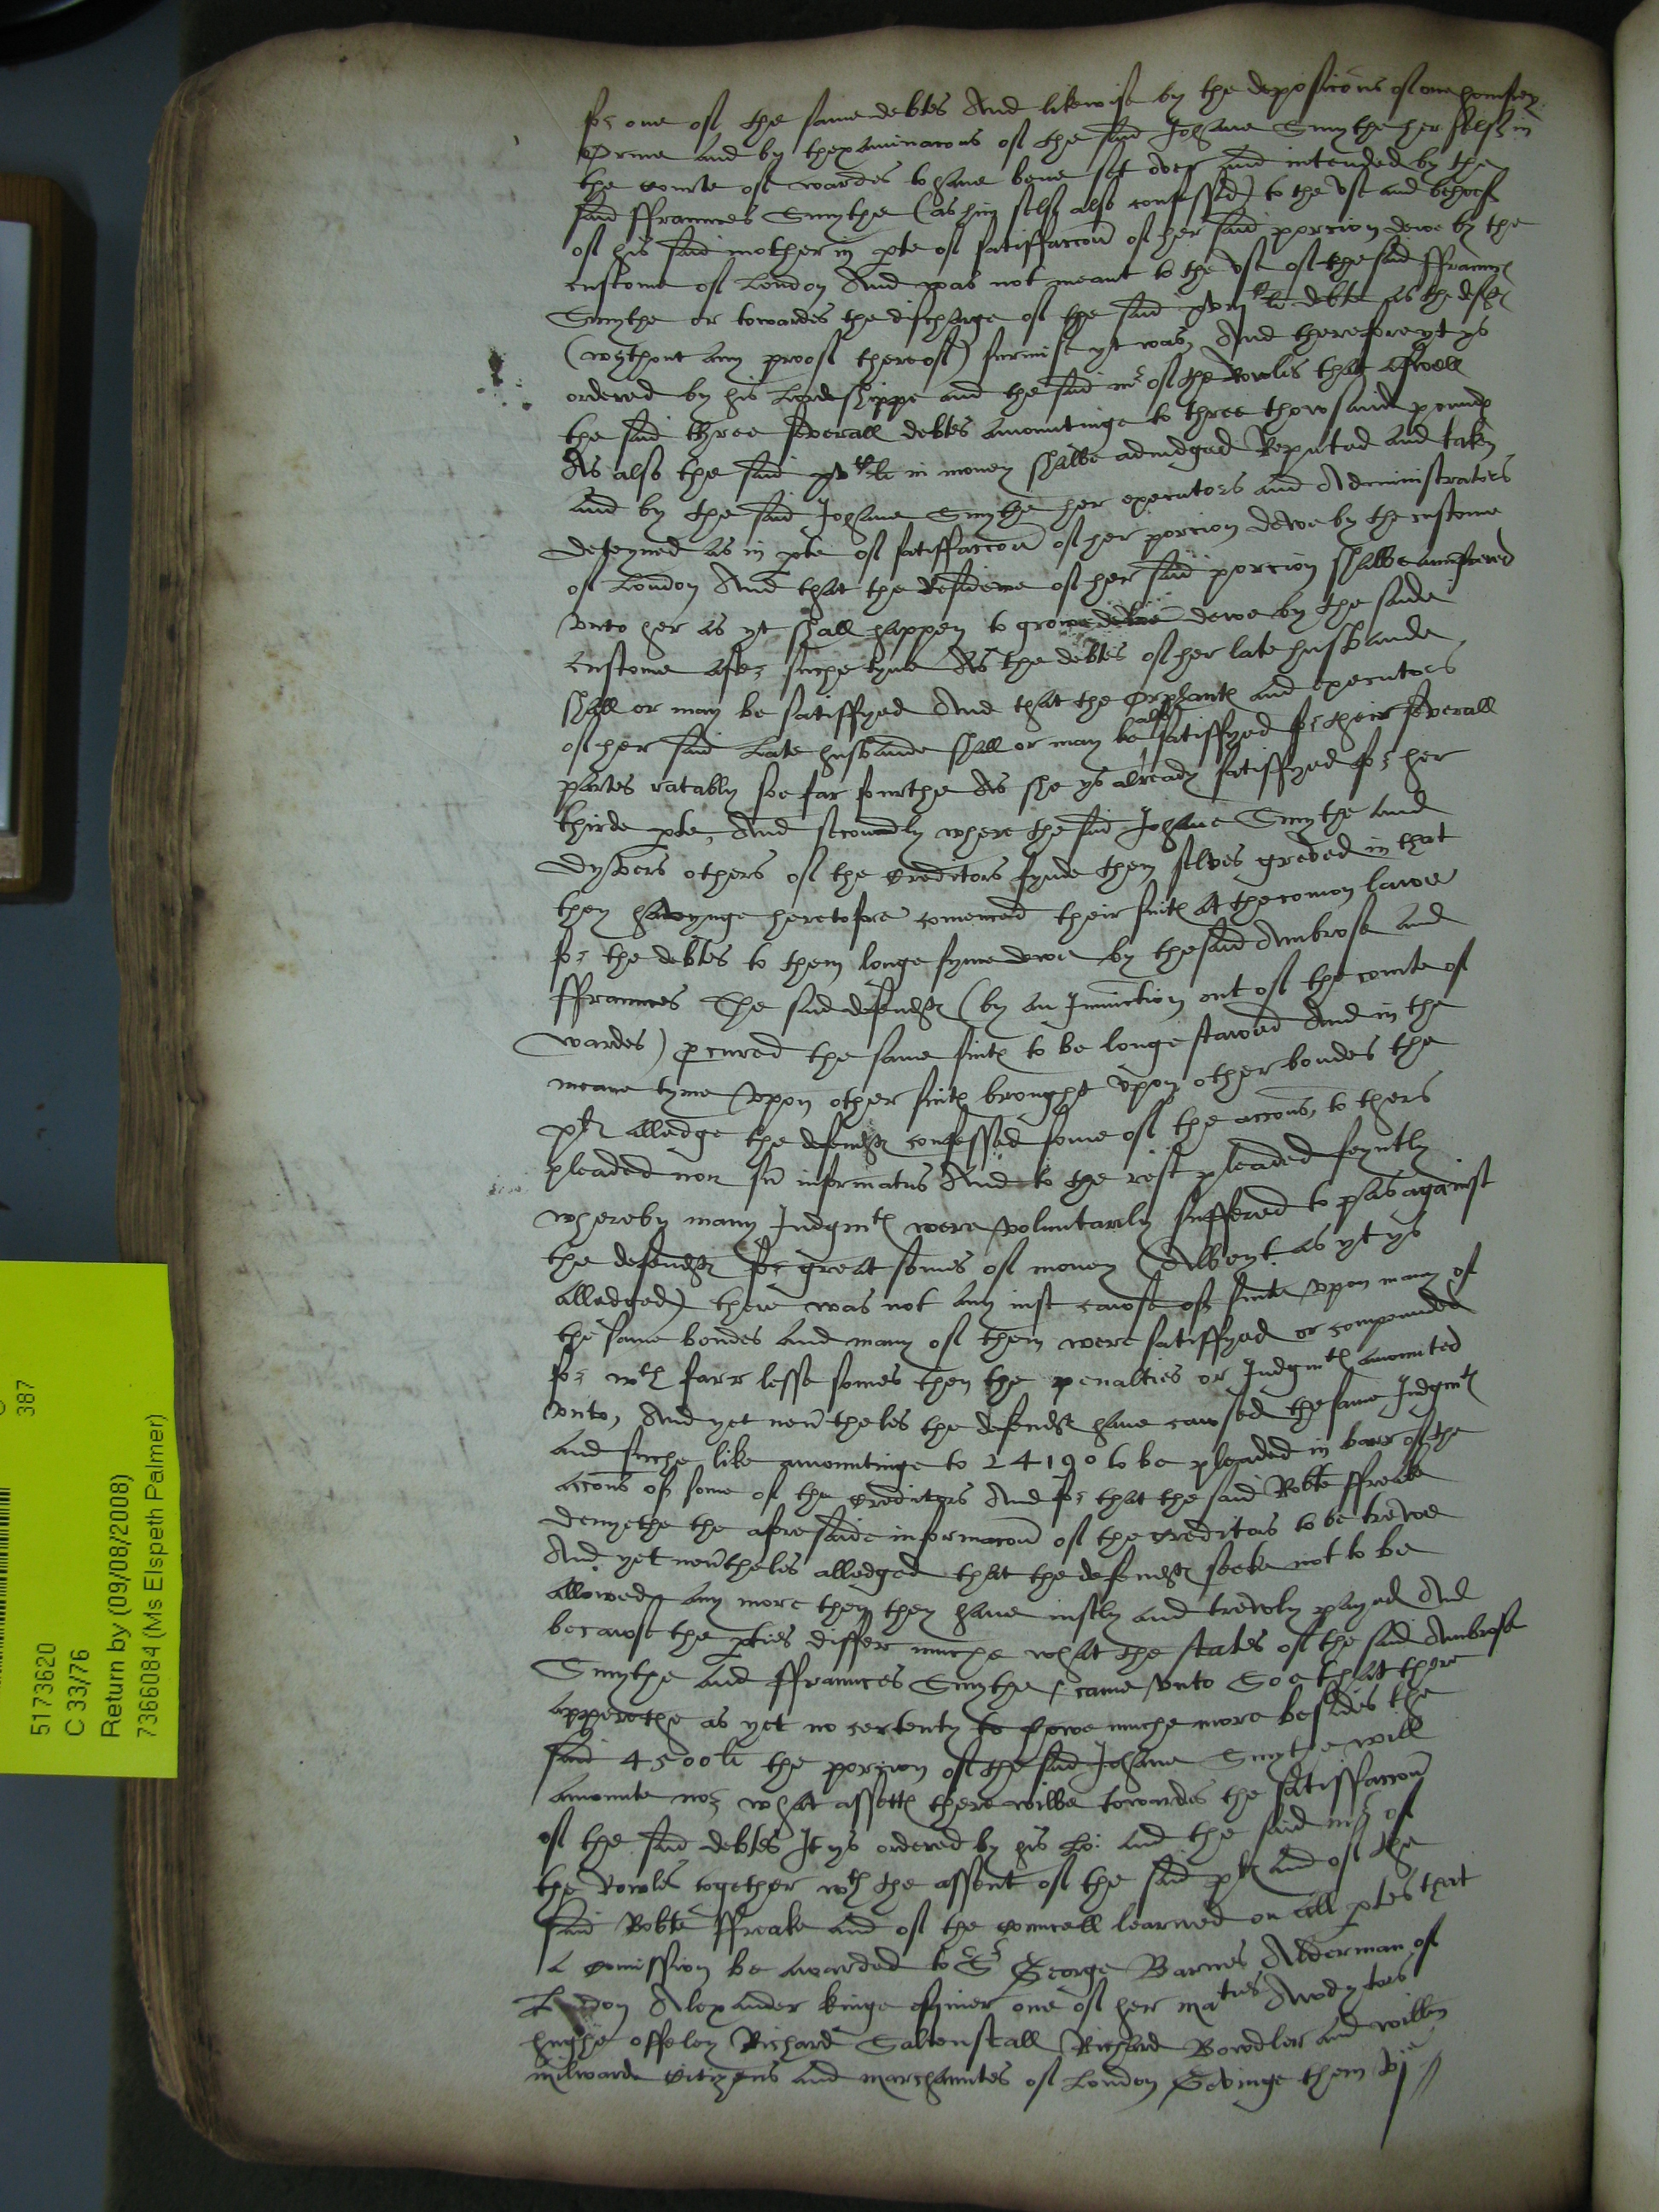 for one of the same debtes And likewise by the deposicõns of one homfrey
Orme and by thexaminacons of the said Johane Smythe her self in
the courte of wardes to have bene set over and intended by the
said ffraunces Smythe (as hym self also confessed) to the use and behoof
of his said mother in pte of satisfaccoñ of her said porcion dewe by the
custome of London And was not meant to the use of the said ffraunces
Smythe or towardes the discharge of the said li debte as the defts
(wythout any proof thereof) surmise yt was, And therefore yt ys
ordered by his Lordeshippe and the said mr of the Rowles that aswell
the said three severall debtes amountinge to three thowsande pounds
As also the said li in money shalbe adiudged Reputed and taken
and by the said Johane Smythe her executors and Administrators
deteyned as in pte of satisfaccoñ of her porcion dewe by the custome
of London And that the residewe of her said porcion shalbe aunswered
unto her as yt shall happen to growe dewe by the saide
custome after suche tyme As the debtes of her late husbande
shall or may be satisfyed And that the Orphants and executors
of her said late husbande shall or may be also satisfyed for their severall
partes ratably soe far fourthe As she ys already satisfyed for her
thirde pte, And secondly where the said Johane Smythe and
dyvers others of the Creditors fynde them selves greved in that
they havynge heretofore comenced their suits at the comon lawe
for the debtes to them longe synce dewe by the said Ambrose and
ffraunces The said defendts (by an Iniunction out of the courte of
wardes) pcured the same suits to be longe stayed And in the
meane tyme upon other suits brought upon other bondes the
plts alledge the defendts confessed some of the accons, to thers
pleaded non sũ informatus And to the rest pleaded feyntly
whereby many Judgmts were voluntarily suffered to pas against
the defendts for great somes of money (Albeyt as yt ys
alledged) there was not any iust cawse of suite upon many of
the same bondes and many of them were satisfyed or compounded
for wth farr lesse somes then the penalties or Judgmts amounted
unto, And yet neũtheles the defendts have cawsed the same Judgmts
and suche like amountinge to 24190 to be pleaded in barr of the
accons of some of the Creditors And for that the said Robte ffreake
denyethe the aforesaide informacoñ of the Creditors to be trewe
And yet neũtheles alledged that the defendts seeke not to be
allowed any more then they have iustly and trewly payed And
becawse the pties differ muche what the states of the said Ambrose
Smythe and ffraunces Smythe came unto Soe that there
apperethe as yet no certenty to howe muche more besides the
said 4500li the porcion of the said Johane Smythe will
amounte nor what assetts there wilbe towardes the satisfaccoñ
of the said debtes It ys ordered by his Lo: and the said mr of
the Rowles together wth the assent of the said plts and of the
said Robte ffreake and of the councell learned on all ptes that
a Comission be awarded to Sr George Barnes Alderman of
London Alexander kinge esquier one of her maties Awdytors
hughe offeley Richard Saltonstall Richard Bowdler and willm
milwarde Citizens and marchauntes of London Gevinge them vj
387
5173620
C 33/76
Return by (09/08/2008)
7366084 (Ms Elspeth Palmer)